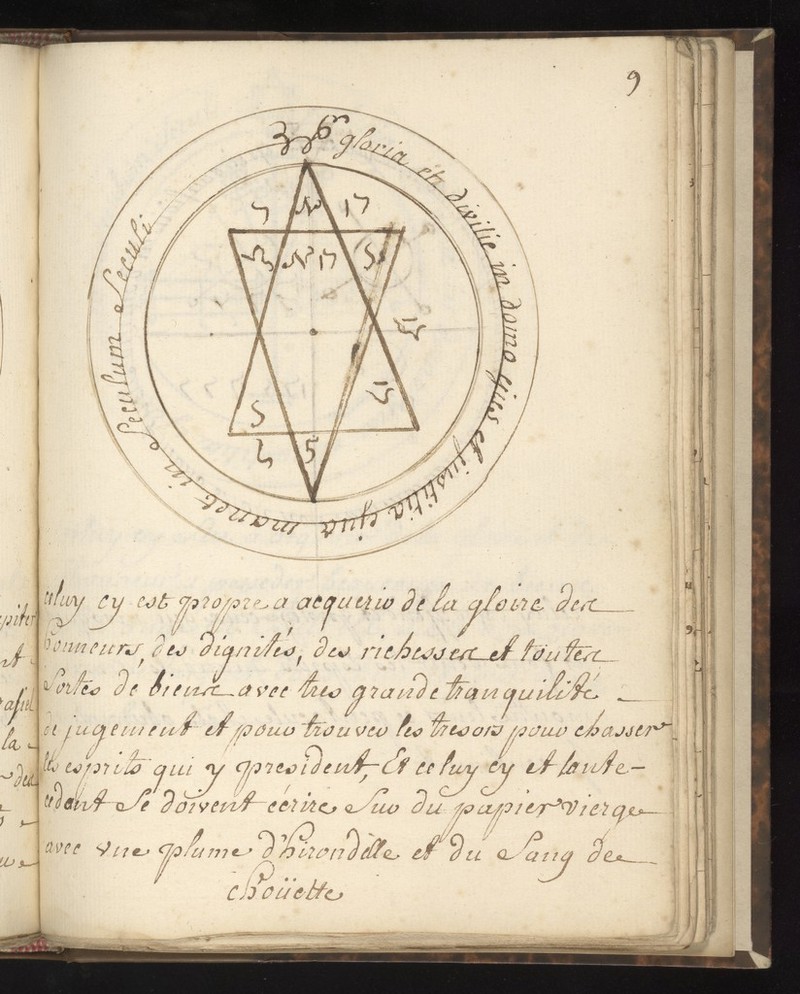 9
gloria et divitie in domo ejus et justitia ejus manet in Seculum Seculi
celuy cy est propre a acquerir de la gloire des
honneurs, des dignités, des richesses et toutes
Sortes de biens avec tres grande tranquilité
de jugement et pour trouver les tresors pour chasser
les esprits qui y president, Et celuy cy et lante-
cedant Se doivent écrire Sur du papier vierge
avec vne plume d'hirondelle et du Sang de
choüette